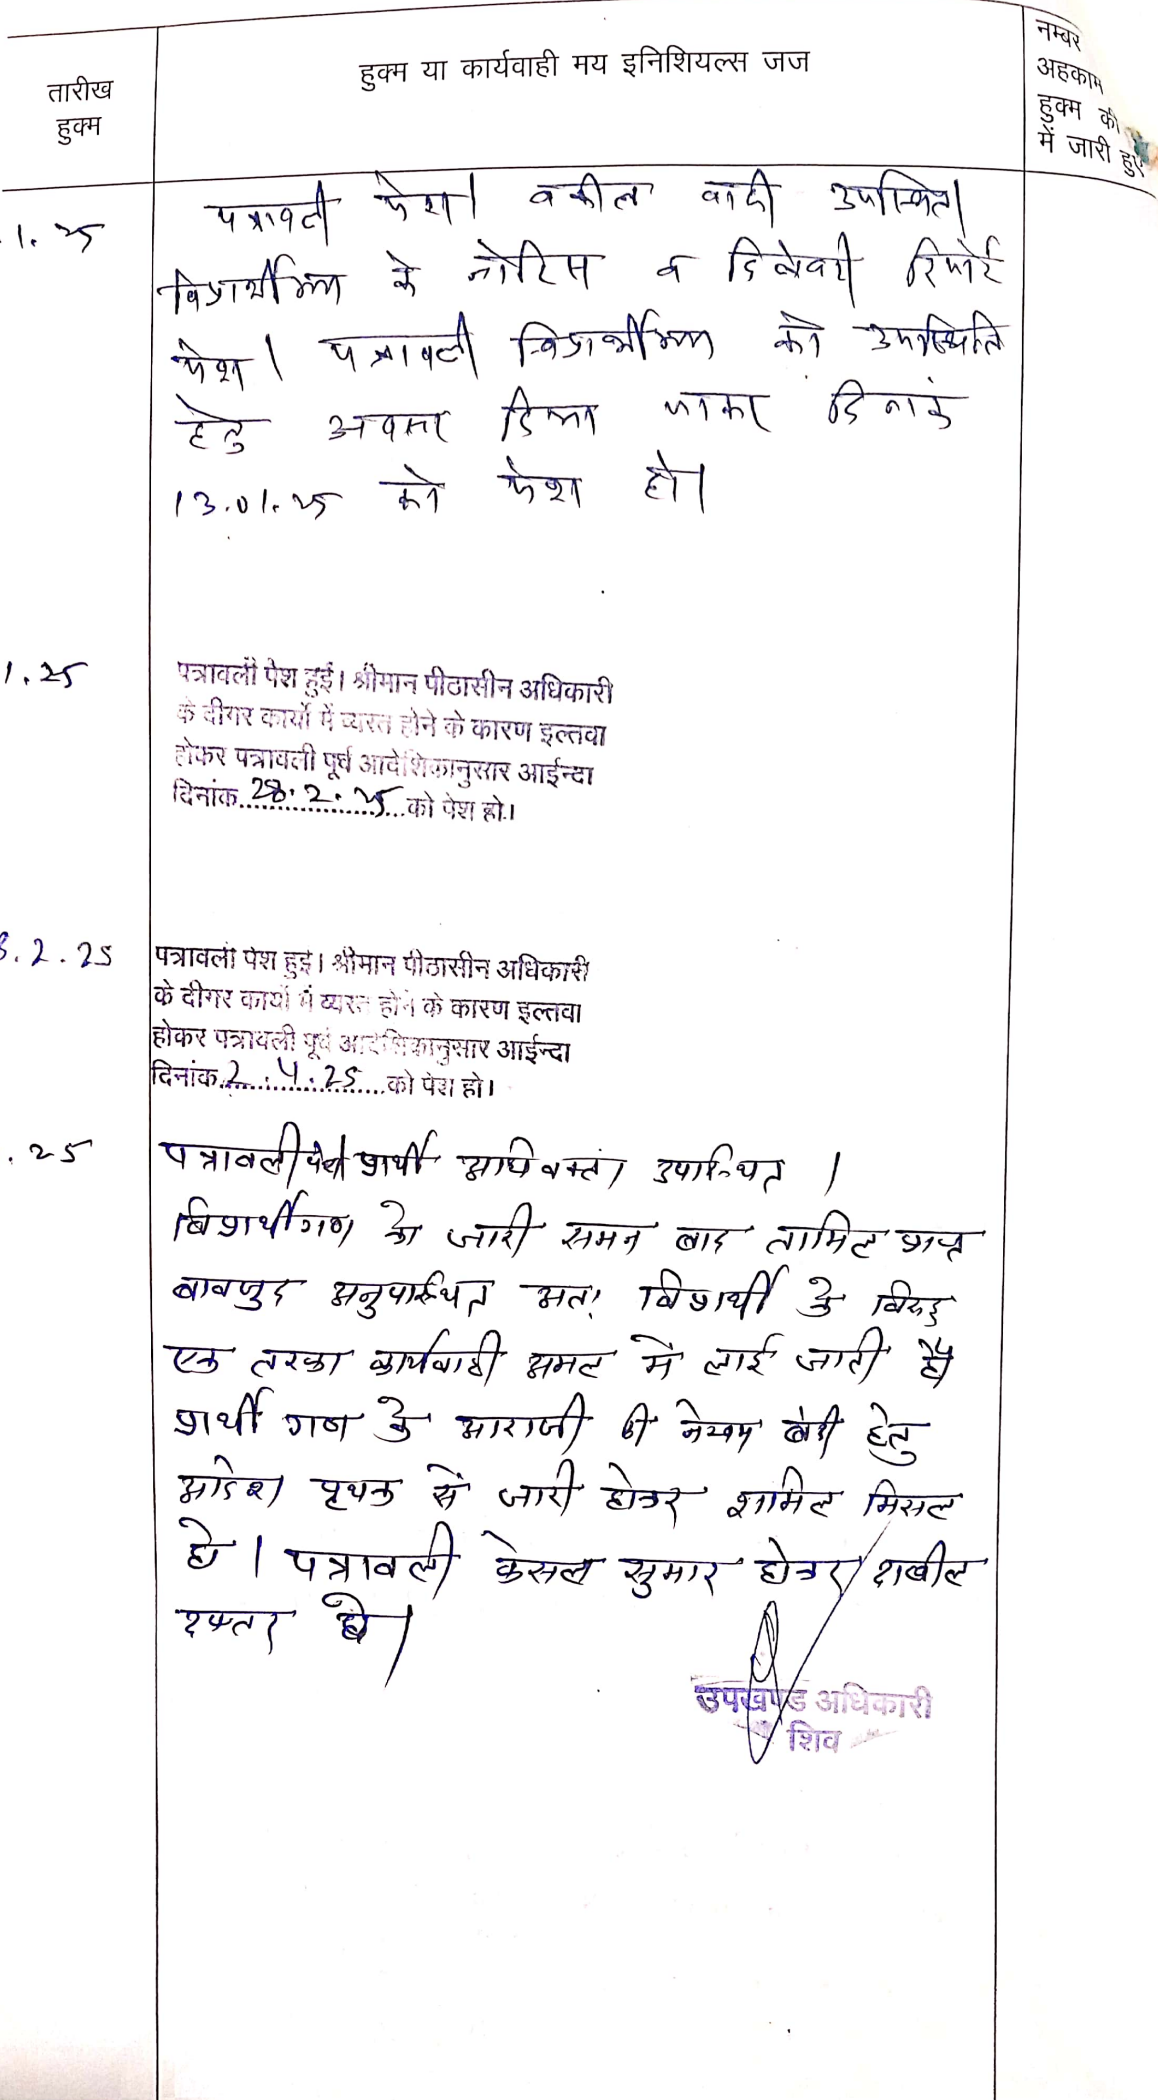 तारीख
हुक्म
हुक्म या कार्यवाही मय इनिशियल्स जज
नम्बर
अहकाम
हुक्म की
में जारी हुए
.1.25
पत्रावली पेश। वकील वादी उपस्थित।
विप्रार्थीगण के नोटिस व डिलेवरी रिपोर्ट
पेश। पत्रावली विप्रार्थीगण को उपस्थिति
हेतु अवसर दिया जाकर दिनांक
13.01.25 को पेश हो।
1.25
पत्रावली पेश हुई। श्रीमान पीठासीन अधिकारी
के दीगर कार्यो में व्यस्त होने के कारण इल्तवा
होकर पत्रावली पूर्व आदेशिकानुसार आईन्दा
दिनांक 28.2.25 को पेश हो।
8.2.25
पत्रावली पेश हुई। श्रीमान पीठासीन अधिकारी
के दीगर कार्यो में व्यस्त होने के कारण इल्तवा
होकर पत्रावली पूर्व आदेशिकानुसार आईन्दा
दिनांक 2.4.25 को पेश हो।
.25
पत्रावली पेश प्रार्थी अधिवक्ता उपस्थित।
विप्रार्थीगण को जारी समन बाद तामिल प्राप्त
बावजुद अनुपस्थित अतः विप्रार्थी के विरुद्ध
एक तरफा कार्यवाही अमल में लाई जाती है
प्रार्थी गण के आराजी की नेखम बंदी हेतु
आदेश पृथक से जारी होकर शामिल मिसल
हो। पत्रावली फैसल सुमार होकर दाखील
दफ्तर हो।
उपखण्ड अधिकारी
शिव